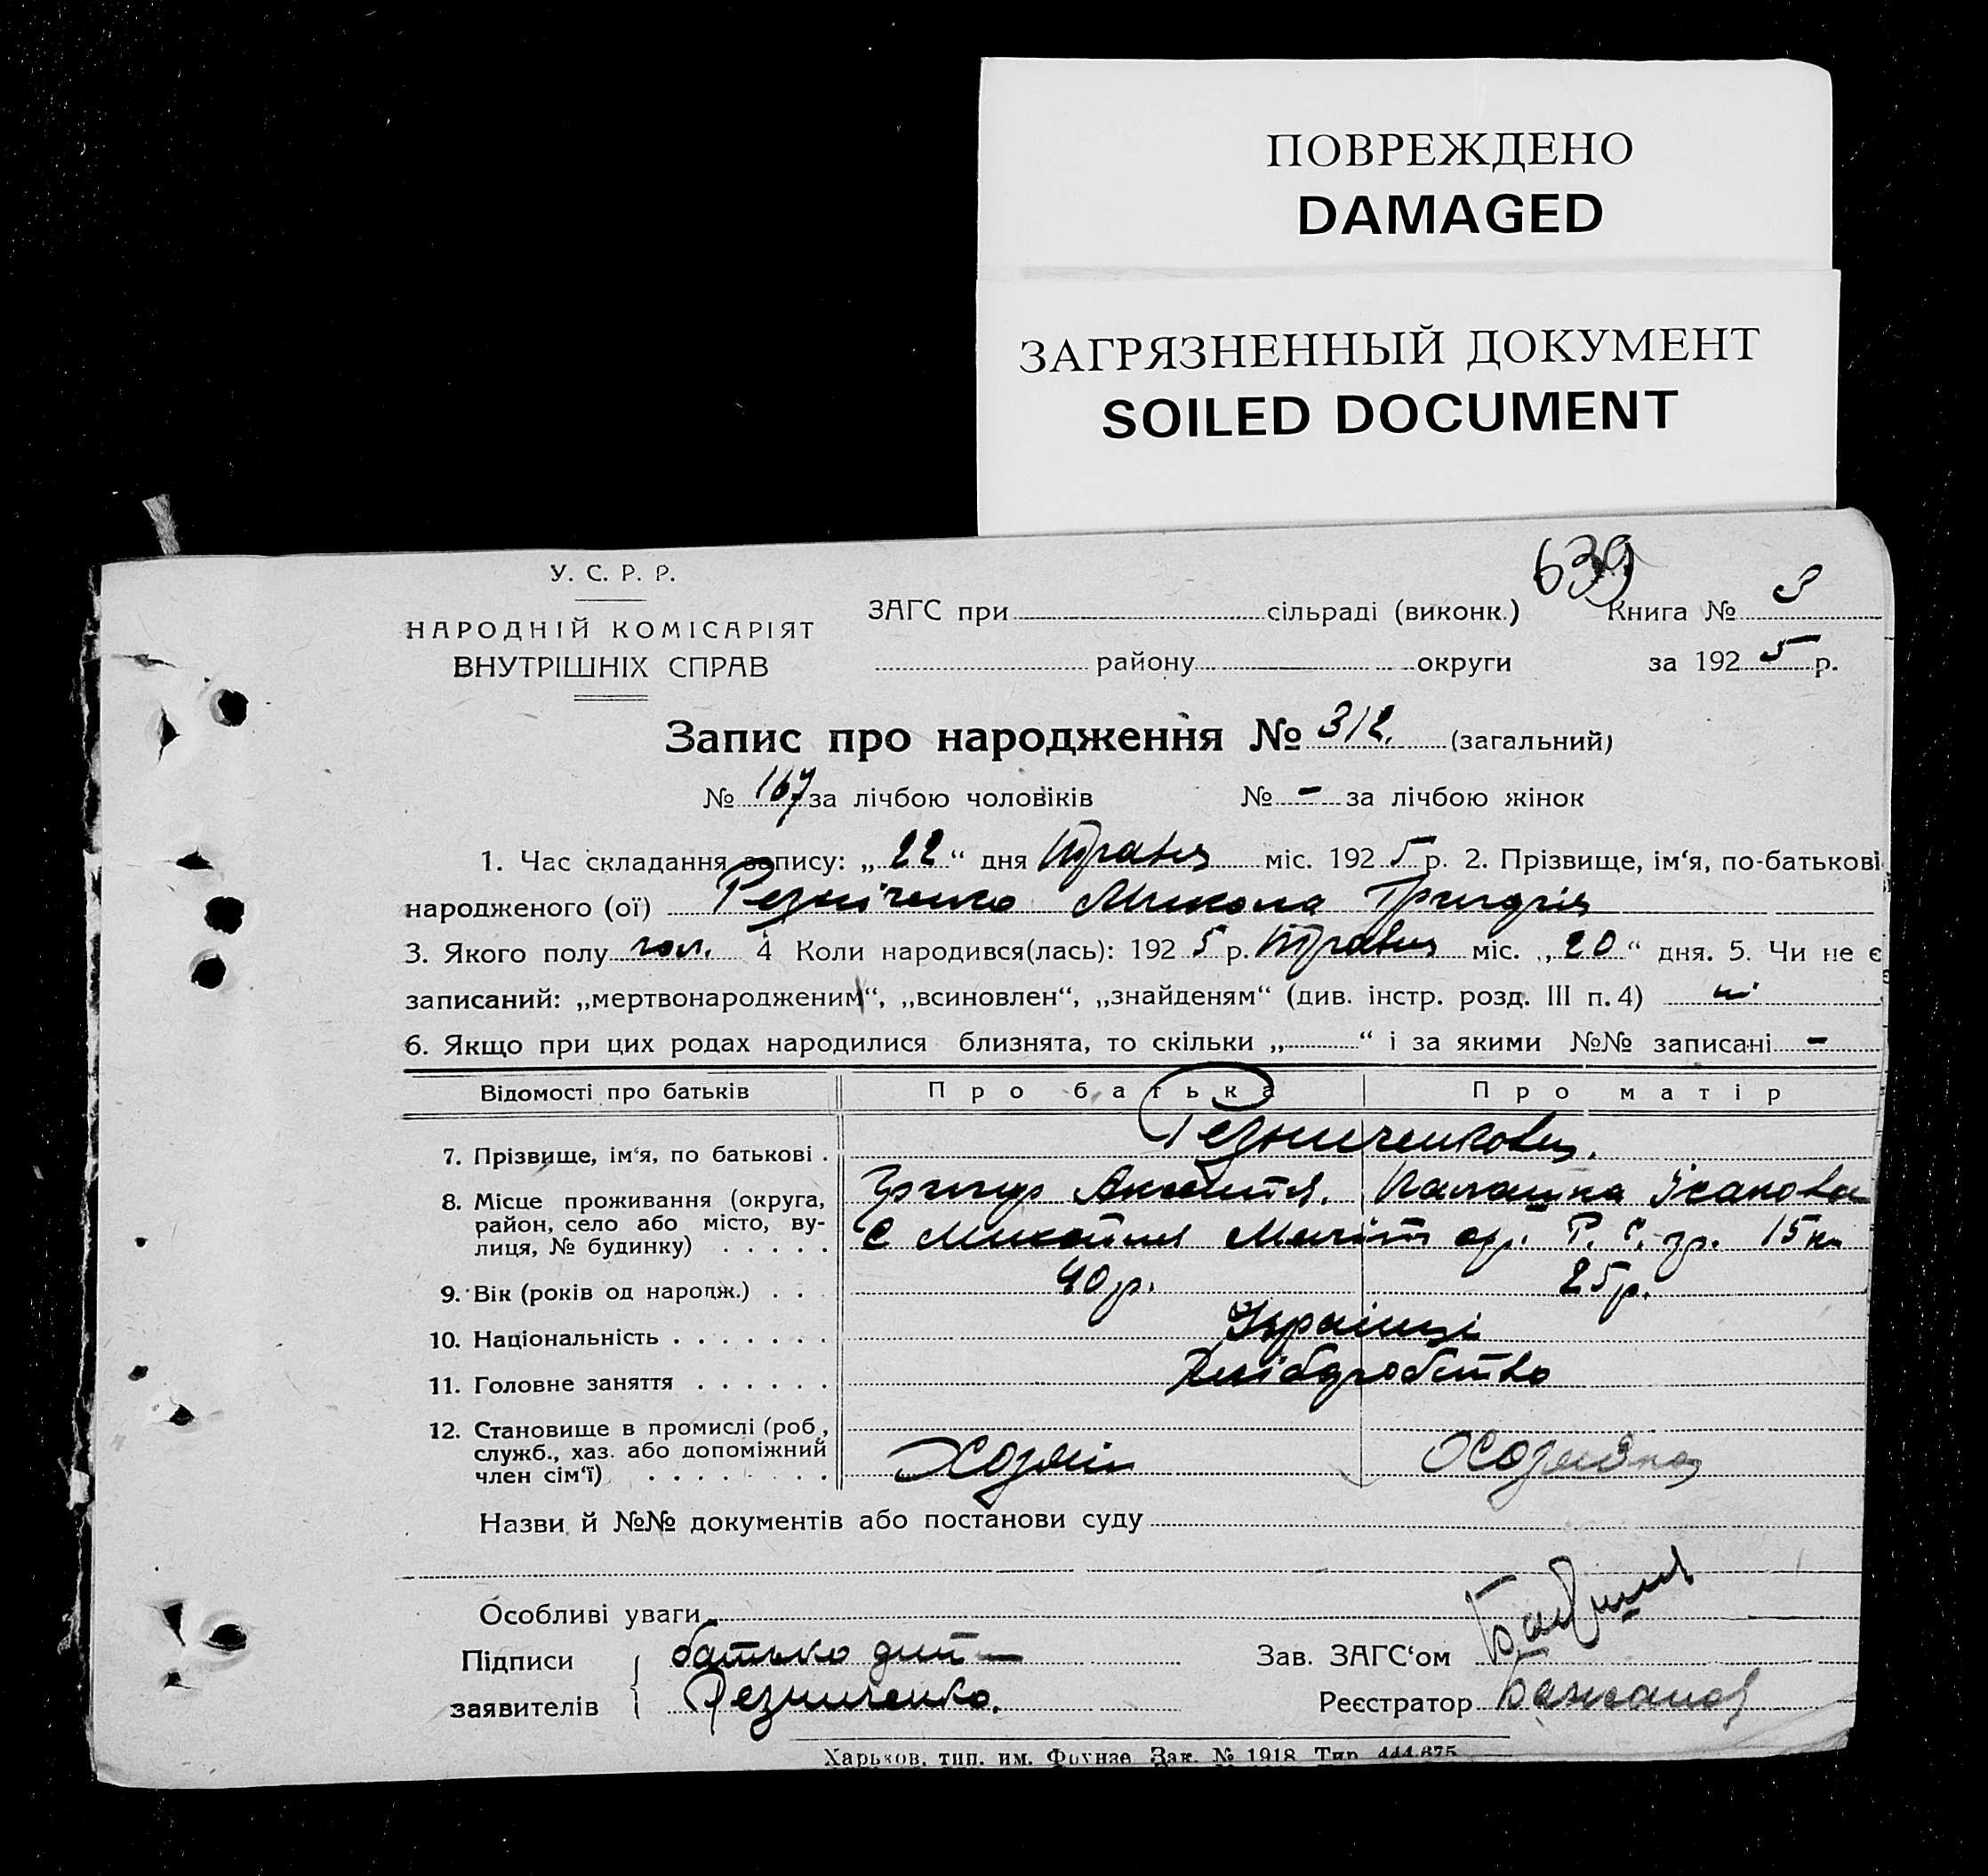 ПОВРЕЖДЕНО
DAMAGED
ЗАГРЯЗНЕННЫЙ ДОКУМЕНТ
SOILED DOCUMENT
639
У. С. Р. Р.
НАРОДНІЙ КОМІСАРІЯТ
ВНУТРІШНІХ СПРАВ
ЗАГС при сільраді (виконк.) Книга № 3
району округи за 1925 р.
Запис про народження № 312. (загальний)
№ 167 за лічбою чоловіків № - за лічбою жінок
1. Час складання запису: „22“ дня Травня міс. 1925 р. 2. Прізвище, ім‘я, по-батькові
народженого (ої) Резніченко Микола Григорія
3. Якого полу чол. 4 Коли народився(лась): 1925 р. Травня міс. „20“ дня. 5. Чи не є
записаний: „мертвонародженим“, „всиновлен“, „знайденям“ (див. інстр. розд. III п. 4) ні
6. Якщо при цих родах народилися близнята, то скільки „ “ і за якими №№ записані -
Відомості про батьків Про батька Про матір
7. Прізвище, ім‘я, по батькові . Резниченкови.
8. Місце проживання (округа, Григор
район, село або місто, ву- С
лиця, № будинку) . . . . . ор. Р. С. гр. 15
9. Вік (років од нарорж.) . . 40 р. 25 р.
10. Національність . . . . . . . Українці
11. Головне заняття . . . . . . Хліборобство
12. Становище в промислі (роб,
служб., хаз. або допоміжний Хозяїн Хозяйка
член сім‘ї) . . . . . . . .
Назви й №№ документів або постанови суду
Особливі уваги
Підписи батько дит— Зав. ЗАГС‘ом
заявителів Резниченко. Реєстратор Бажанов
Харьков, тип. им. Фрунзе Зак. № 1918 Тир. 444.875